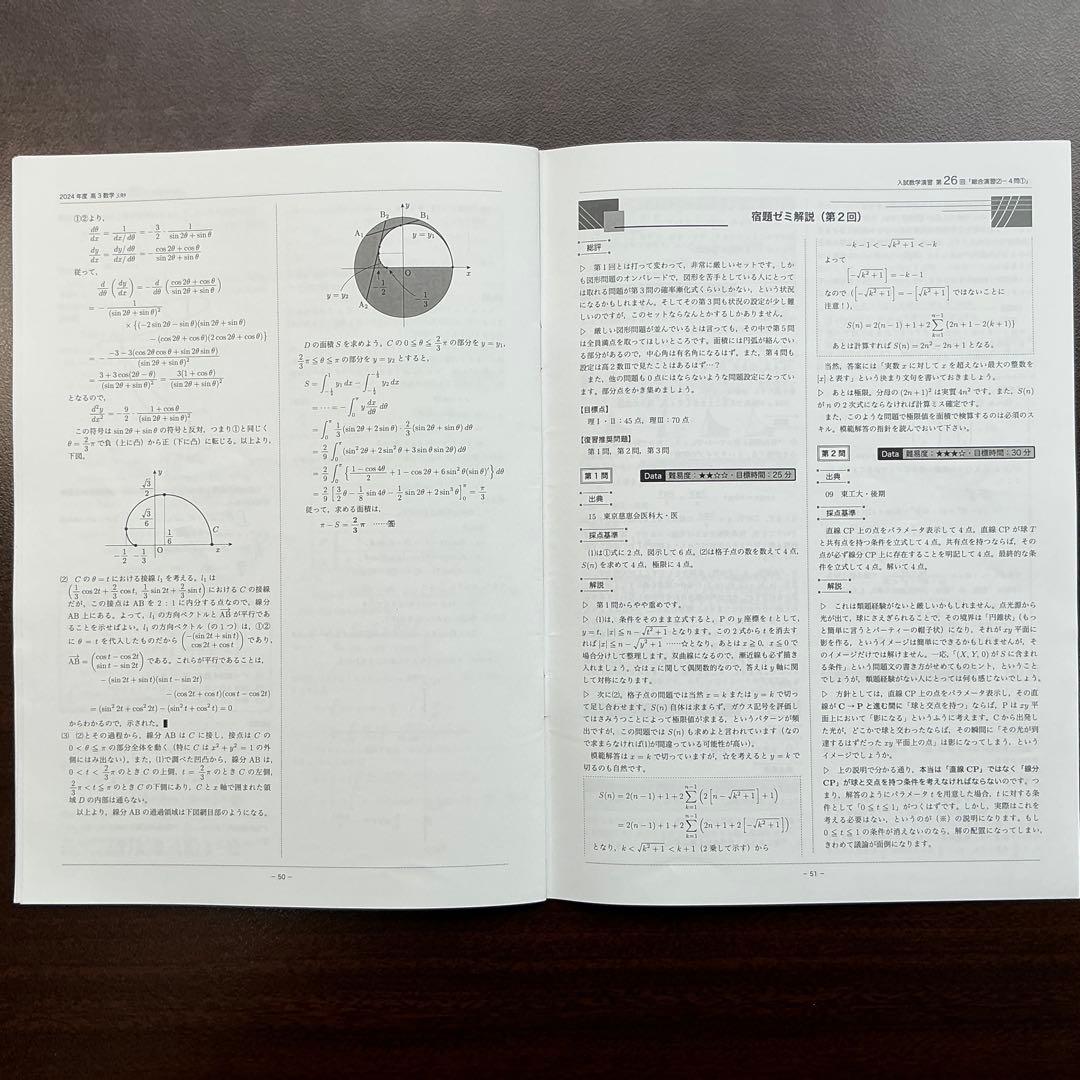 2024年度 高3数学
①②より，
dθ/dx = 1/(dx/dθ) = −3/2 · 1/(sin2θ+sinθ)
dy/dx = (dy/dθ)/(dx/dθ) = −(cos2θ+cosθ)/(sin2θ+sinθ)
従って，
d/dθ (dy/dx) = −d/dθ ((cos2θ+cosθ)/(sin2θ+sinθ))
= −1/(sin2θ+sinθ)²
×{(−2sin2θ−sinθ)(sin2θ+sinθ)
−(cos2θ+cosθ)(2cos2θ+cosθ)}
= −(−3−3(cos2θcosθ+sin2θsinθ))/(sin2θ+sinθ)²
= (3+3cos(2θ−θ))/(sin2θ+sinθ)² = 3(1+cosθ)/(sin2θ+sinθ)²
となるので，
この符号はsin2θ+sinθの符号と反対，つまり①と同じく
θ=2/3πで負（上に凸）から正（下に凸）に転じる．以上より，
下図．
y
√3/2
√3/6
1/6
C
−1/2 −1/3 O x
⑵ Cのθ=tにおける接線l₁を考える．l₁は
(1/3 cos2t+2/3 cos t, 1/3 sin2t+2/3 sin t)におけるCの接線
だが，この接点はABを2：1に内分する点なので，線分
AB上にある．よって，l₁の方向ベクトルとABが平行であ
ることを示せばよい．l₁の方向ベクトル（の1つ）は，①②
にθ=tを代入したものから(−(sin2t+sin t) cos2t+cos t)であり，
AB=(cos t−cos2t sin t−sin2t)である．これらが平行であることは，
−(sin2t+sin t)(sin t−sin2t)
−(cos2t+cos t)(cos t−cos2t)
=(sin²2t+cos²2t)−(sin²t+cos²t)=0
からわかるので，示された．∎
⑶ ⑵とその過程から，線分ABはCに接し，接点はCの
0<θ≦πの部分全体を動く（特にCはx²+y²=1の外
側にはみ出ない）．また，⑴で調べた凹凸から，線分ABは，
0<t<2/3πのときCの上側，t=2/3πのときCの左側，
2/3π<t≦πのときCの下側にあり，Cとx軸で囲まれた領
域Dの内部は通らない．
以上より，線分ABの通過領域は下図網目部のようになる．
y
B₂ B₁
A₁
y=y₁
O x
−1/2
y=y₂
−1/3
A₂
Dの面積Sを求めよう．Cの0≦θ≦2/3πの部分をy=y₁，
2/3π≦θ≦πの部分をy=y₂とすると，
= ⋯⋯ = −∫₀^π y dx/dθ dθ
= ∫₀^π 1/3(sin2θ+2sinθ)·2/3(sin2θ+sinθ)dθ
= 2/9 ∫₀^π (sin²2θ+2sin²θ+3sinθsin2θ)dθ
= 2/9 ∫₀^π {(1−cos4θ)/2+1−cos2θ+6sin²θ(sinθ)′}dθ
= 2/9 [3/2 θ−1/8 sin4θ−1/2 sin2θ+2sin³θ]₀^π = π/3
従って，求める面積は，
π−S=2/3π ⋯⋯答
− 50 −
入試数学演習 第26回「総合演習②−4問①」
宿題ゼミ解説（第2回）
総評
▷ 第1回とは打って変わって，非常に厳しいセットです．しか
も図形問題のオンパレードで，図形を苦手としている人にとって
は取れる問題が第3問の確率漸化式くらいしかない，という状況
になるかもしれません．そしてその第3問も状況の設定が少し難し
いのですが，このセットならなんとかするしかありません．
▷ 厳しい図形問題が並んでいるとは言っても，その中で第5問
は全員満点を取ってほしいところです．面積には円弧が絡んでい
る部分があるので，中心角は有名角になるはず．また，第4問も
設定は高2数Ⅲで見たことあるはず…？
また，他の問題も0点にはならないような問題設定になってい
ます．部分点をかき集めましょう．
【目標点】
理Ⅰ・Ⅱ：45点，理Ⅲ：70点
【復習推奨問題】
第1問，第2問，第3問
第1問 Data 難易度：★★☆☆・目標時間：25分
出典
15 東京慈恵会医科大・医
採点基準
⑴は①式に2点，図示して6点．⑵は格子点の数を数えて4点，
S(n)を求めて4点，極限に4点．
解説
▷ 第1問からやや重めです．
▷ ⑴は，条件をそのまま立式すると，Pのy座標をtとして，
y=t, |x|≦n−√(t²+1)となります．この2式からtを消去す
れば|x|≦n−√(y²+1) ⋯⋯☆となり，あとはx≧0, x≦0で
場合分けして整理します．双曲線になるので，漸近線も必ず描き
入れましょう．☆はxに関して偶関数的なので，答えはy軸に関
して対称になります．
▷ 次に⑵．格子点の問題では当然x=kまたはy=kで切っ
て足し合わせます．S(n)自体は求まらず，ガウス記号を評価し
てはさみうつことによって極限値が求まる，というパターンが頻
出ですが，この問題ではS(n)も求めよと言われています（なの
で求まらなければ⑴が間違っている可能性が高い）．
模範解答はx=kで切っていますが，☆を考えるとy=kで
切るのも自然です．
S(n)=2(n−1)+1+2Σ_{k=1}^{n−1}(2[n−√(k²+1)]+1)
=2(n−1)+1+2Σ_{k=1}^{n−1}(2n+1+2[−√(k²+1)])
となり，k<√(k²+1)<k+1（2乗して示す）から
−k−1<−√(k²+1)<−k
よって
[−√(k²+1)]=−k−1
なので（[−√(k²+1)]=−[√(k²+1)]ではないことに
注意！），
S(n)=2(n−1)+1+2Σ_{k=1}^{n−1}{2n+1−2(k+1)}
あとは計算すればS(n)=2n²−2n+1となる．
当然，答案には「実数xに対してxを超えない最大の整数を
[x]と表す」という決まり文句を書いておきましょう．
▷ あとは極限．分母の(2n+1)²は実質4n²です．また，S(n)
がnの2次式にならなければ計算ミス確定です．
また，このような問題で極限値を面積で検算するのは必須のス
キル．模範解答の指針を読んでおいて下さい．
第2問 Data 難易度：★★★☆・目標時間：30分
出典
09 東工大・後期
採点基準
直線CP上の点をパラメータ表示して4点．直線CPが球T
と共有点を持つ条件を立式して4点．共有点を持つならば，その
点が必ず線分CP上に存在することを明記して4点．最終的な条
件を立式して4点．解いて4点．
解説
▷ これは類題経験がないと厳しいかもしれません．点光源から
光が出て，球にさえぎられることで，その境界は「円錐状」（もっ
と簡単に言うとパーティーの帽子状）になり，それがxy平面に
影を作る，というイメージは簡単にできるかもしれませんが，そ
のイメージだけでは解けません．一応，「(X, Y, 0)がSに含まれ
る条件」という問題文の書き方がせめてものヒント，ということ
でしょうが，類題経験がない人にとっては何も感じないでしょう．
▷ 方針としては，直線CP上の点をパラメータ表示し，その直
線がC→Pと進む間に「球と交点を持つ」ならば，Pはxy平
面上において「影になる」というふうに考えます．Cから出発し
た光が，どこかで球と交わったならば，その瞬間に「その光が到
達するはずだったxy平面上の点」は影になってしまう，という
イメージでしょうか．
▷ 上の説明で分かる通り，本当は「直線CP」ではなく「線分
CP」が球と交点を持つ条件を考えなければならないのです．つ
まり，解答のようにパラメータtを用意した場合，tに対する条
件として「0≦t≦1」がつくはずです．しかし，実際はこれを
考える必要はない，というのが（※）の説明になります．もし
0≦t≦1の条件が消えないのなら，解の配置になってしまい，
きわめて議論が面倒になります．
− 51 −